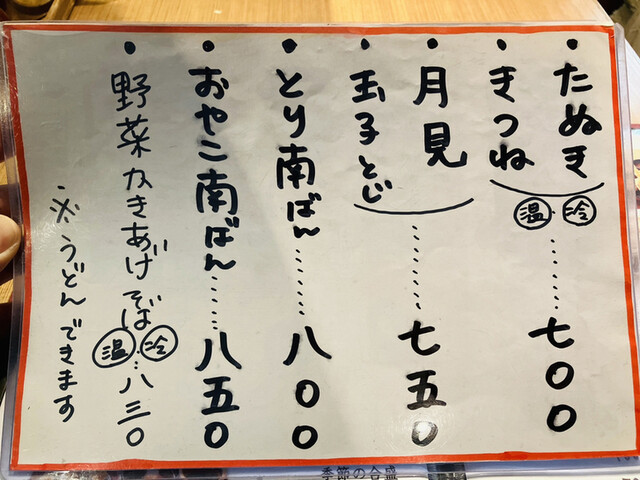 ・たぬき
・きつね
冷・温……七〇〇
・月見
・玉子とじ
……七五〇
・とり南ばん……八〇〇
・おやこ南ばん……八五〇
・野菜かきあげそば冷・温…八三〇
※うどんできます
季節の合盛